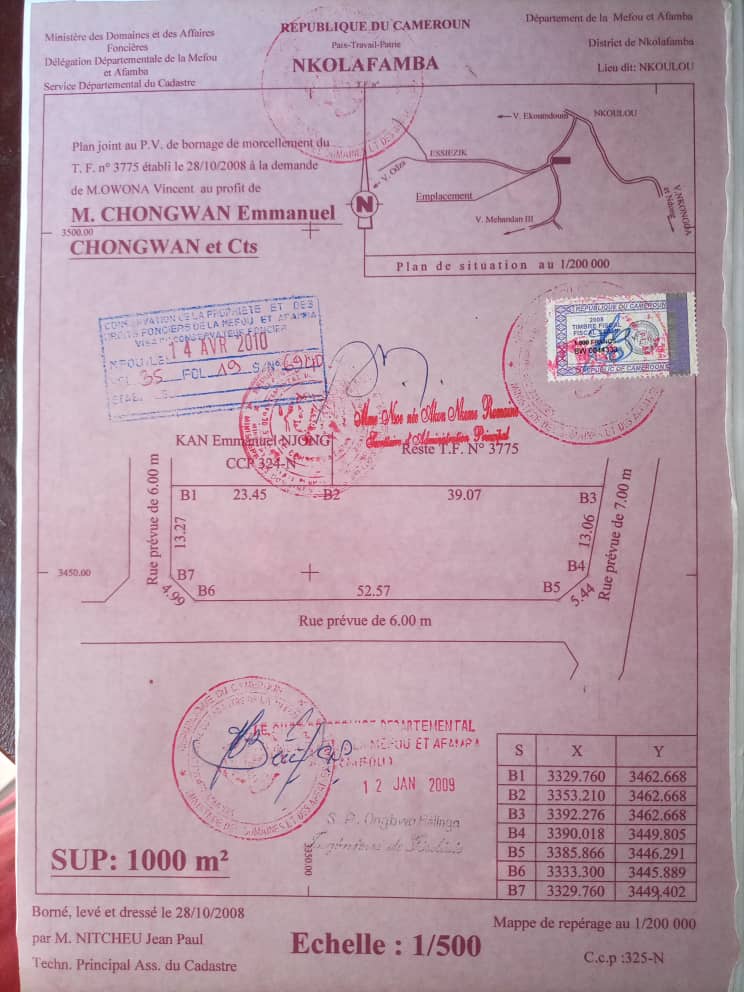 Ministère des Domaines et des Affaires
Foncières
Délégation Départementale de la Mefou
et Afamba
Service Départemental du Cadastre
REPUBLIQUE DU CAMEROUN
Paix-Travail-Patrie
NKOLAFAMBA
T.F. n°
Département de la Mefou et Afamba
District de Nkolafamba
Lieu dit: NKOULOU
Plan joint au P.V. de bornage de morcellement du
T. F. n° 3775 établi le 28/10/2008 à la demande
de M.OWONA Vincent au profit de
M. CHONGWAN Emmanuel
CHONGWAN et Cts
3500.00
V. Ekoumdoum
NKOULOU
ESSIEZIK
V. Odza
Emplacement
N
V. Mehandan III
Plan de situation au 1/200 000
CONSERVATION DE LA PROPRIETE ET DES
DROITS FONCIERS DE LA MEFOU ET AFAMBA
CONSERVATEUR FONCIER
14 AVR 2010
VOL 35 FOL 19
REPUBLIQUE DU CAMEROUN
2008
TIMBRE FISCAL
1.000 FRANCS
REPUBLIC OF CAMEROON
Secrétaire d'Administration Principal
KAN Emmanuel NJONG
CCP 324-N
Reste T.F. N° 3775
Rue prévue de 6.00 m
B1
23.45
B2
39.07
B3
13.27
13.06
Rue prévue de 7.00 m
3450.00
B7
B4
4.99
B6
52.57
B5
5.44
Rue prévue de 6.00 m
LE CHEF DE SERVICE DEPARTEMENTAL
LA MEFOU ET AFAMBA
12 JAN 2009
3350.00
SUP: 1000 m²
S X Y
B1 3329.760 3462.668
B2 3353.210 3462.668
B3 3392.276 3462.668
B4 3390.018 3449.805
B5 3385.866 3446.291
B6 3333.300 3445.889
B7 3329.760 3449.402
Borné, levé et dressé le 28/10/2008
par M. NITCHEU Jean Paul
Techn. Principal Ass. du Cadastre
Echelle : 1/500
Mappe de repérage au 1/200 000
C.c.p :325-N